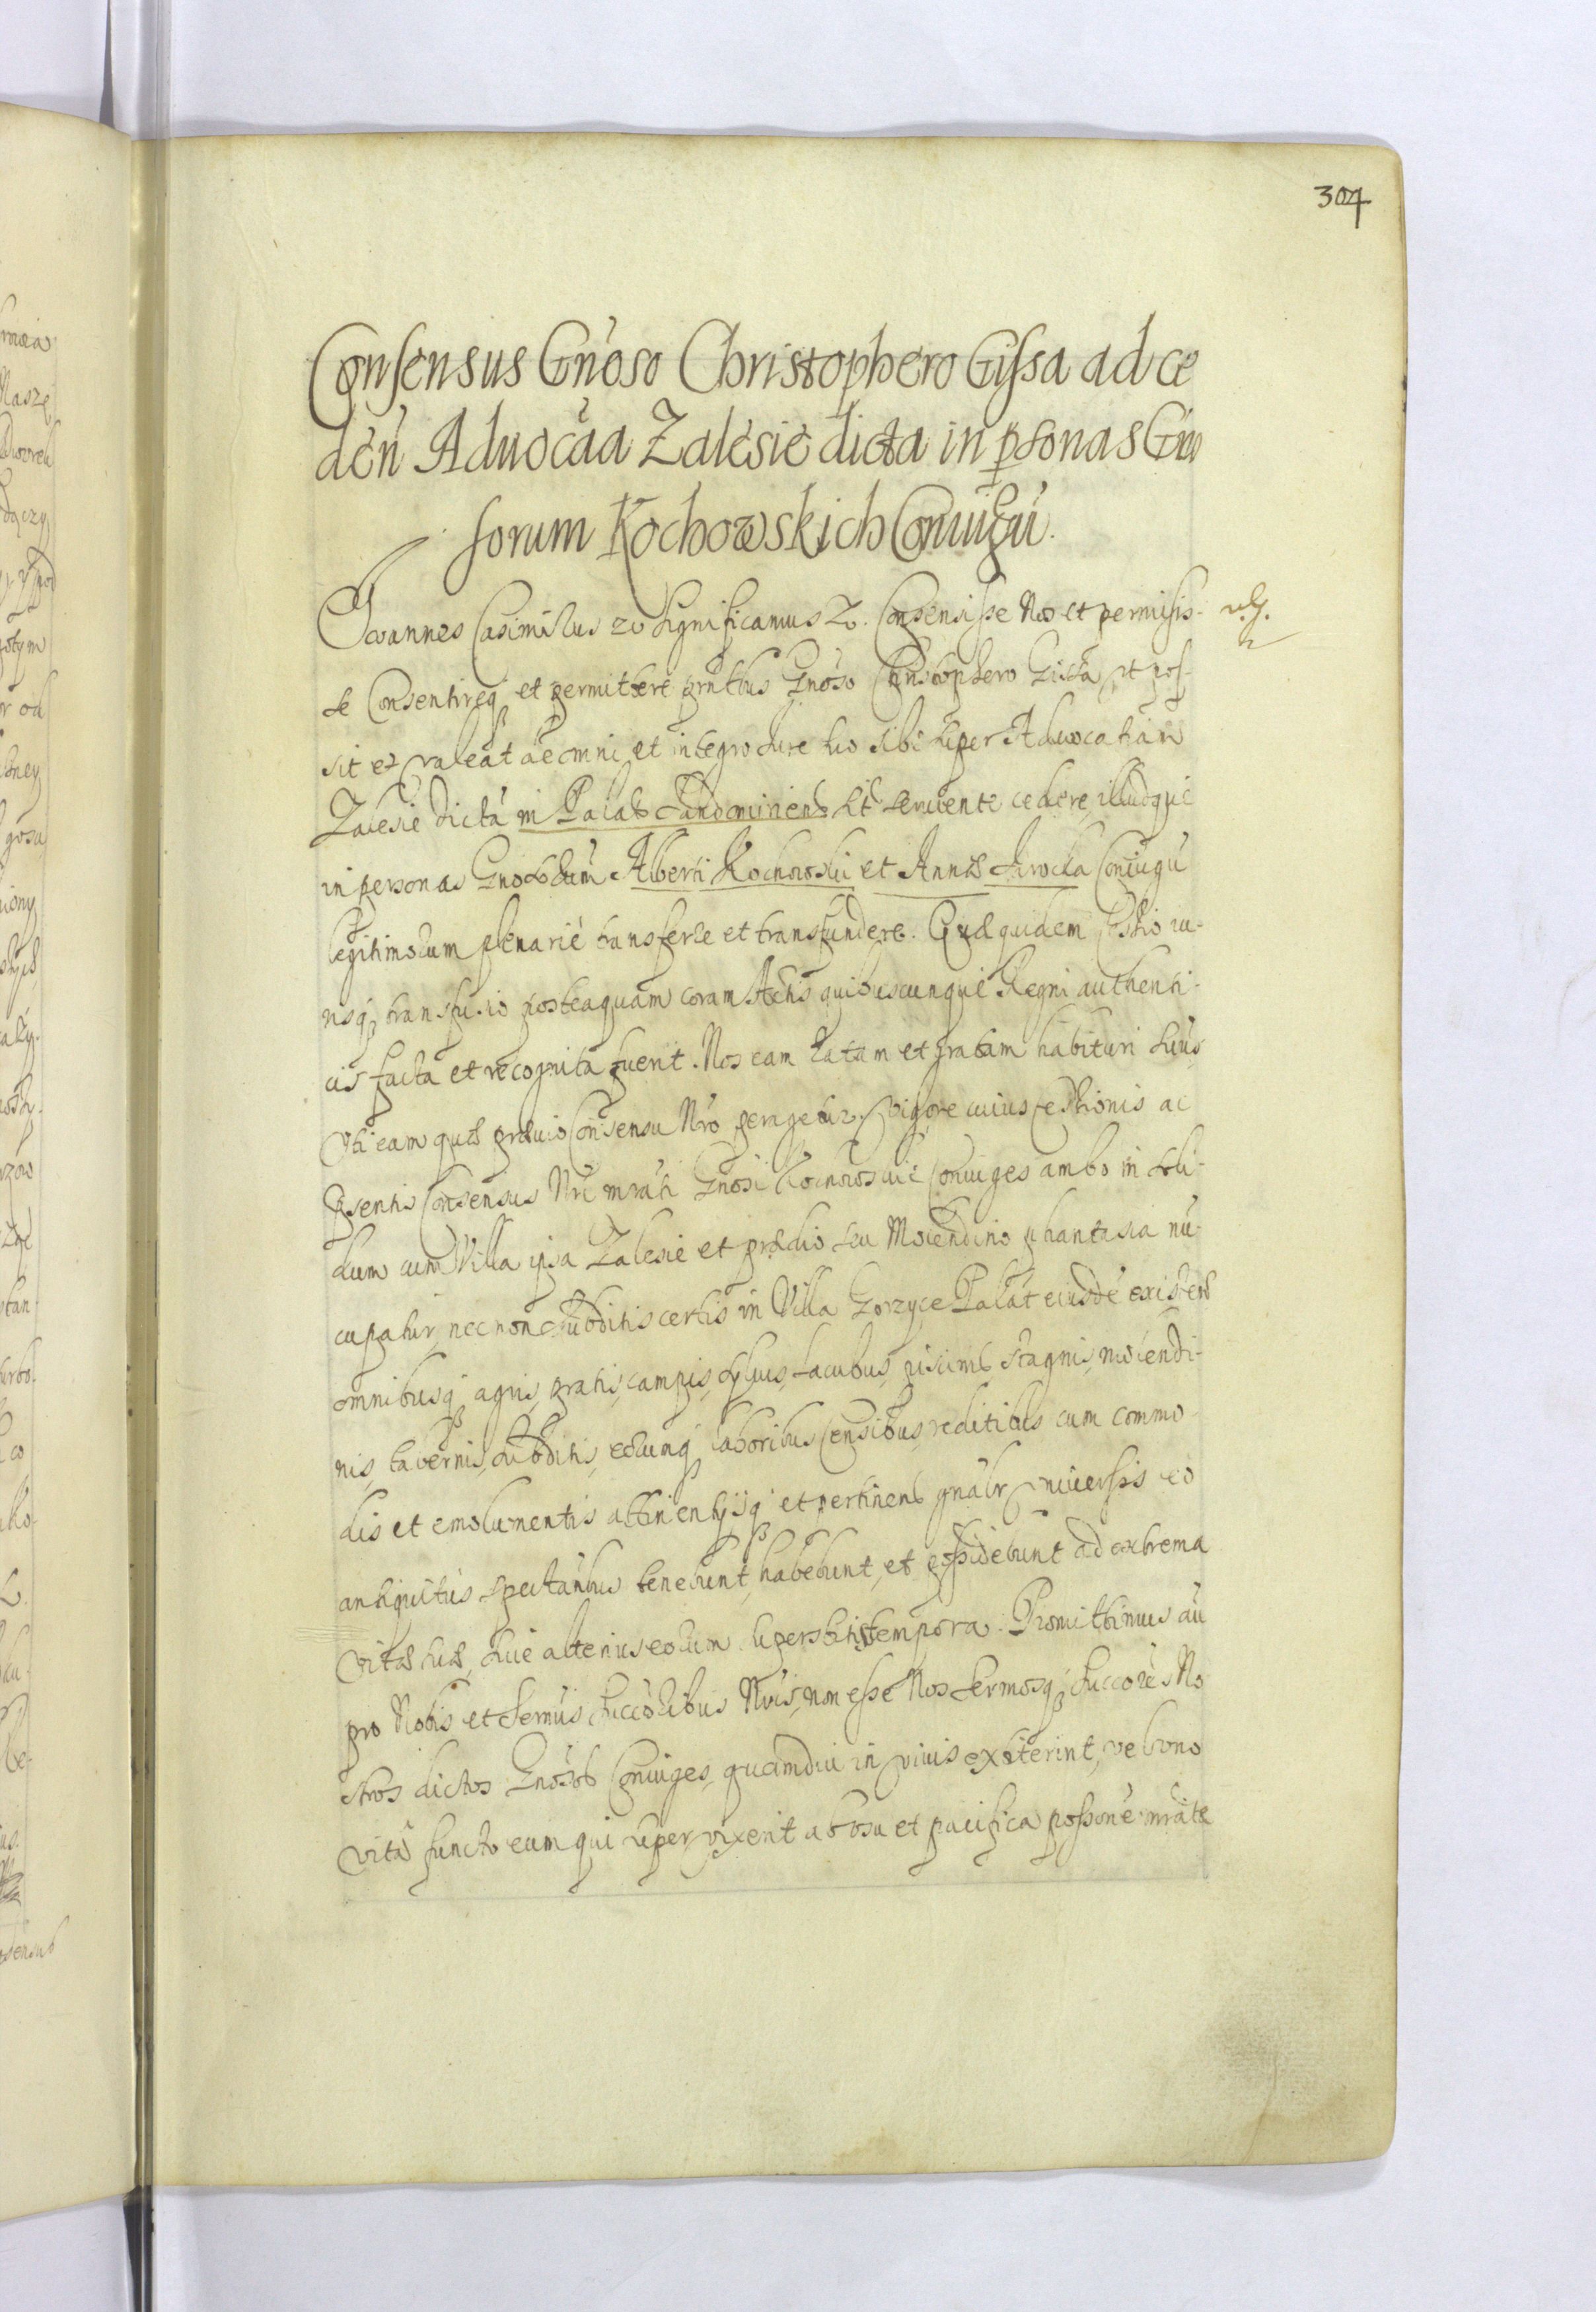 304
Consensus Gnoso Christophero Gissa ad ce
den Aduocãa Zalesie dicta in psonas Gno
sorum Kochowskich Coniugũ.
Joannes Casimirus etc Significamus etc. Consensisse Nos et permisis-
se Consentireq et permittere pntbus Gnoso Christophero Gissa, ut pos-
sit et valeat de omni et integro Iure suo sibi super Aduocatiam
Zalesie dictã in Palat Sandomirien sit seruiente cedere, illudque
in personas Gnosorum Alberti Kochowski et Annæ Coniugũ
legitimorum plenariè transferre et transfundere. Quæ quidem Cessio iu-
risq transfusio posteaquam coram Actis quibuscunque Regni authenti-
cis facta et recognita fuerit. Nos eam ratam et gratam habituri sumus,
Uti eam quæ præuio Consensu Nro peragetur. Vigore cuius Cessionis ac
Psentis Consensus Nri mrati Gnosi Kochowscie Coniuges ambo in soli-
dum cum Villa ipsa Zalesie et prædio seu Molendino phantasia nũ-
cupatur, nec non subditis certis in Villa Gorzyce Palat eiusdẽ existen
omnibusq agris, pratis, campis, syluis, lacubus, piscinis, stagnis, molendi-
nis, tabernis, subditis, eorumq laboribus Censibus, reditibus cum commo-
dis et emolumentis attinentijsq et pertinen gnalr vniuersis eo
antiquitus spectantbus tenebunt, habebunt, et possidebunt ad extrema
vitæ suæ, siue alterius eorum superstitis tempora. Promittimus aũ
pro Nobis et Sermis Succoribus Nris, non esse Nos Sermosq Succores No
stros dictos Gnosos Coniuges, quamdiu in viuis extiterint, vel vno
vitâ functo eum qui supervixerit ab vsu et pacifica possone mrate